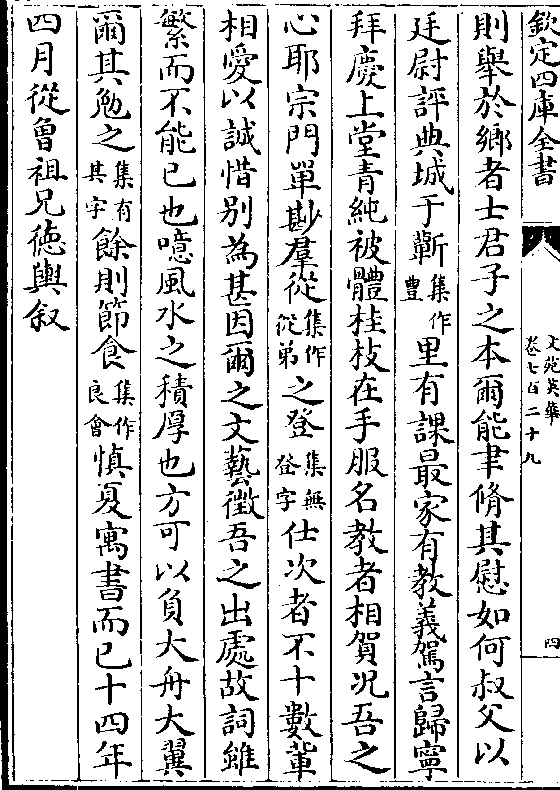 欽定四庫全書
文苑英華
卷七百二十九
四
則舉於鄉者士君子之本爾能聿脩其慰如何叔父以
廷尉評典城于蘄集作豊里有課最家有教義駕言歸寧
拜慶上堂青純被體桂枝在手服名教者相賀况吾之
心耶宗門單尠羣從集作從弟之登集無登字仕次者不十數輩
相愛以誠惜别為甚因爾之文藝徵吾之出處故詞雖
繁而不能已也噫風水之積厚也方可以負大舟大翼
爾其勉之集有其字餘則節食集作良會慎夏寓書而已十四年
四月從曾祖兄徳輿叙